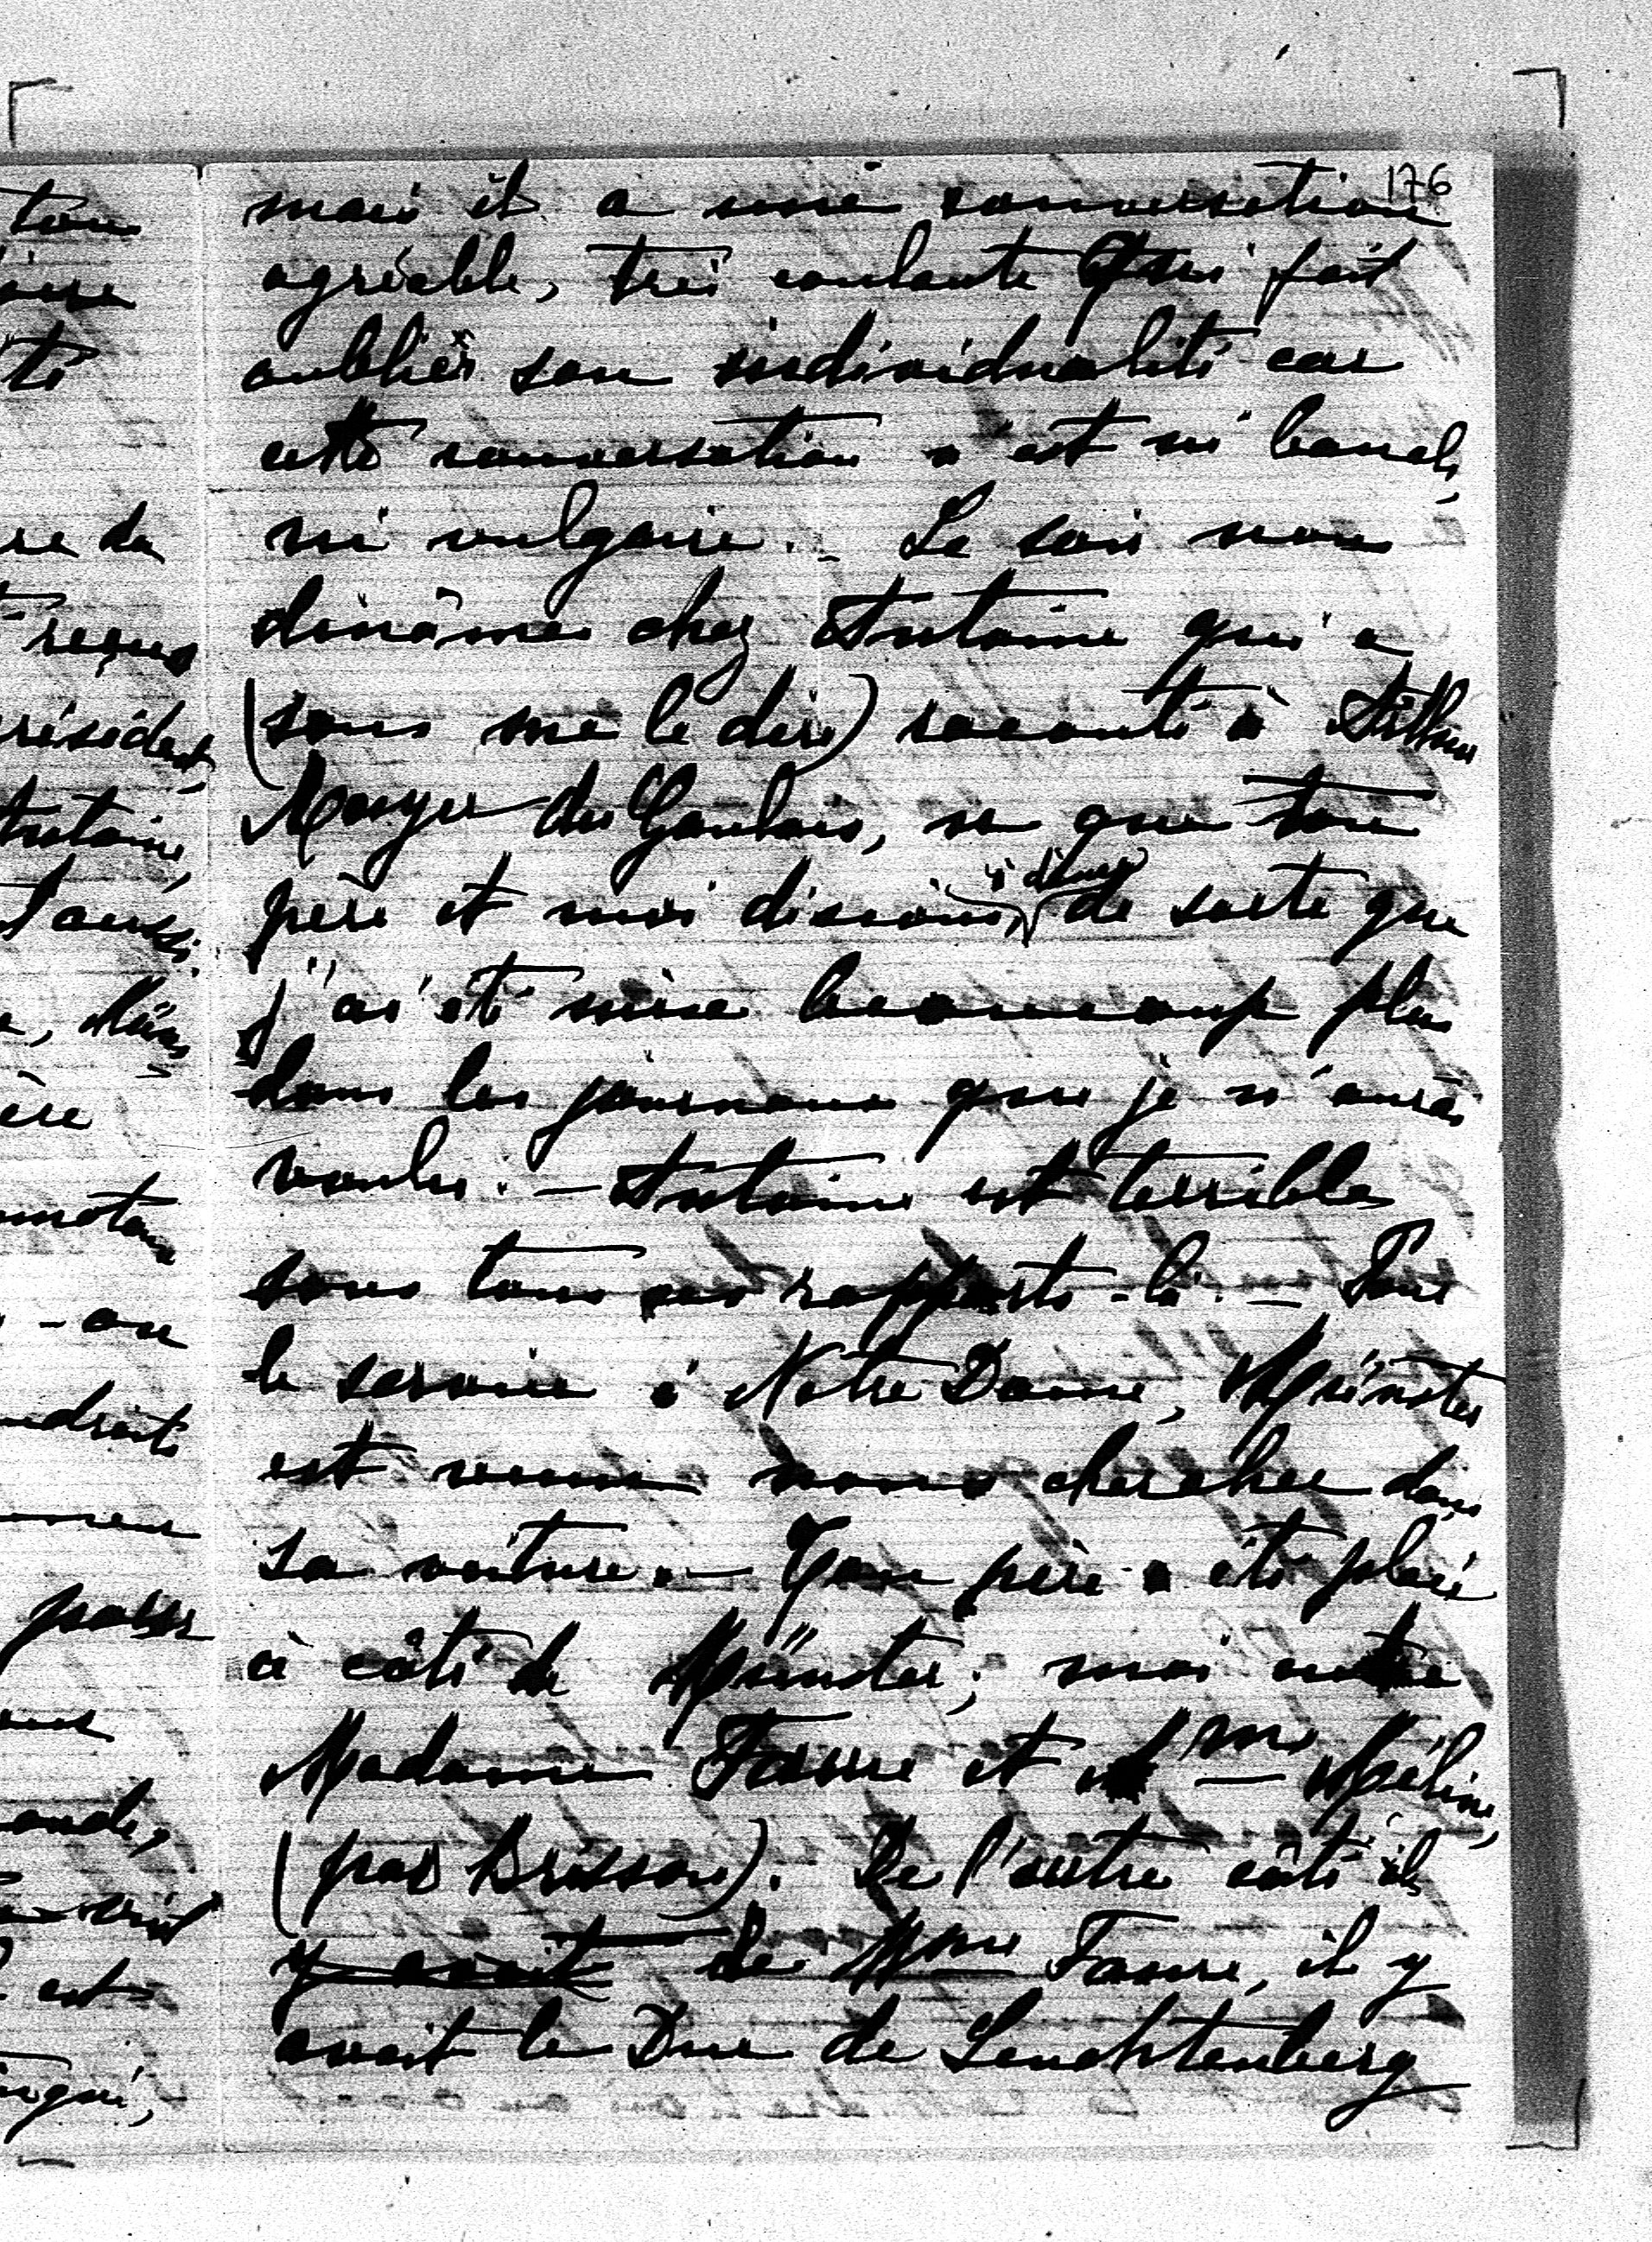 176
mais il a une conversation
agréable, très coulante qui fait
oublier son individualité car
cette conversation n'est ni banale,
ni vulgaire. _ Le soir nous
dinâmes chez Antoine qui a
(sans me le dire) raconté à Arthur
Meyer du Gaulois, ce que ton
père et moi disions, à dîner de sorte que
j'ai été mise beaucoup plus
dans les journaux que je n'aurais
voulu. — Antoine est terrible
sous tous ces rapports-là. — Pour
le service à Notre Dame, Münster
est venu nous chercher dans
sa voiture. — Ton père a été placé
à côté de Münster; moi entre
Madame Faure et Mme Méline,
(pas Brisson). De l'autre côté il
y avait de Mme Faure, il y
avait le Duc de Leuchtenberg
ton
té
re du
reçus
résident,
Antoine,
t aussi.
ère
- on
endroits
passer
onde,
est